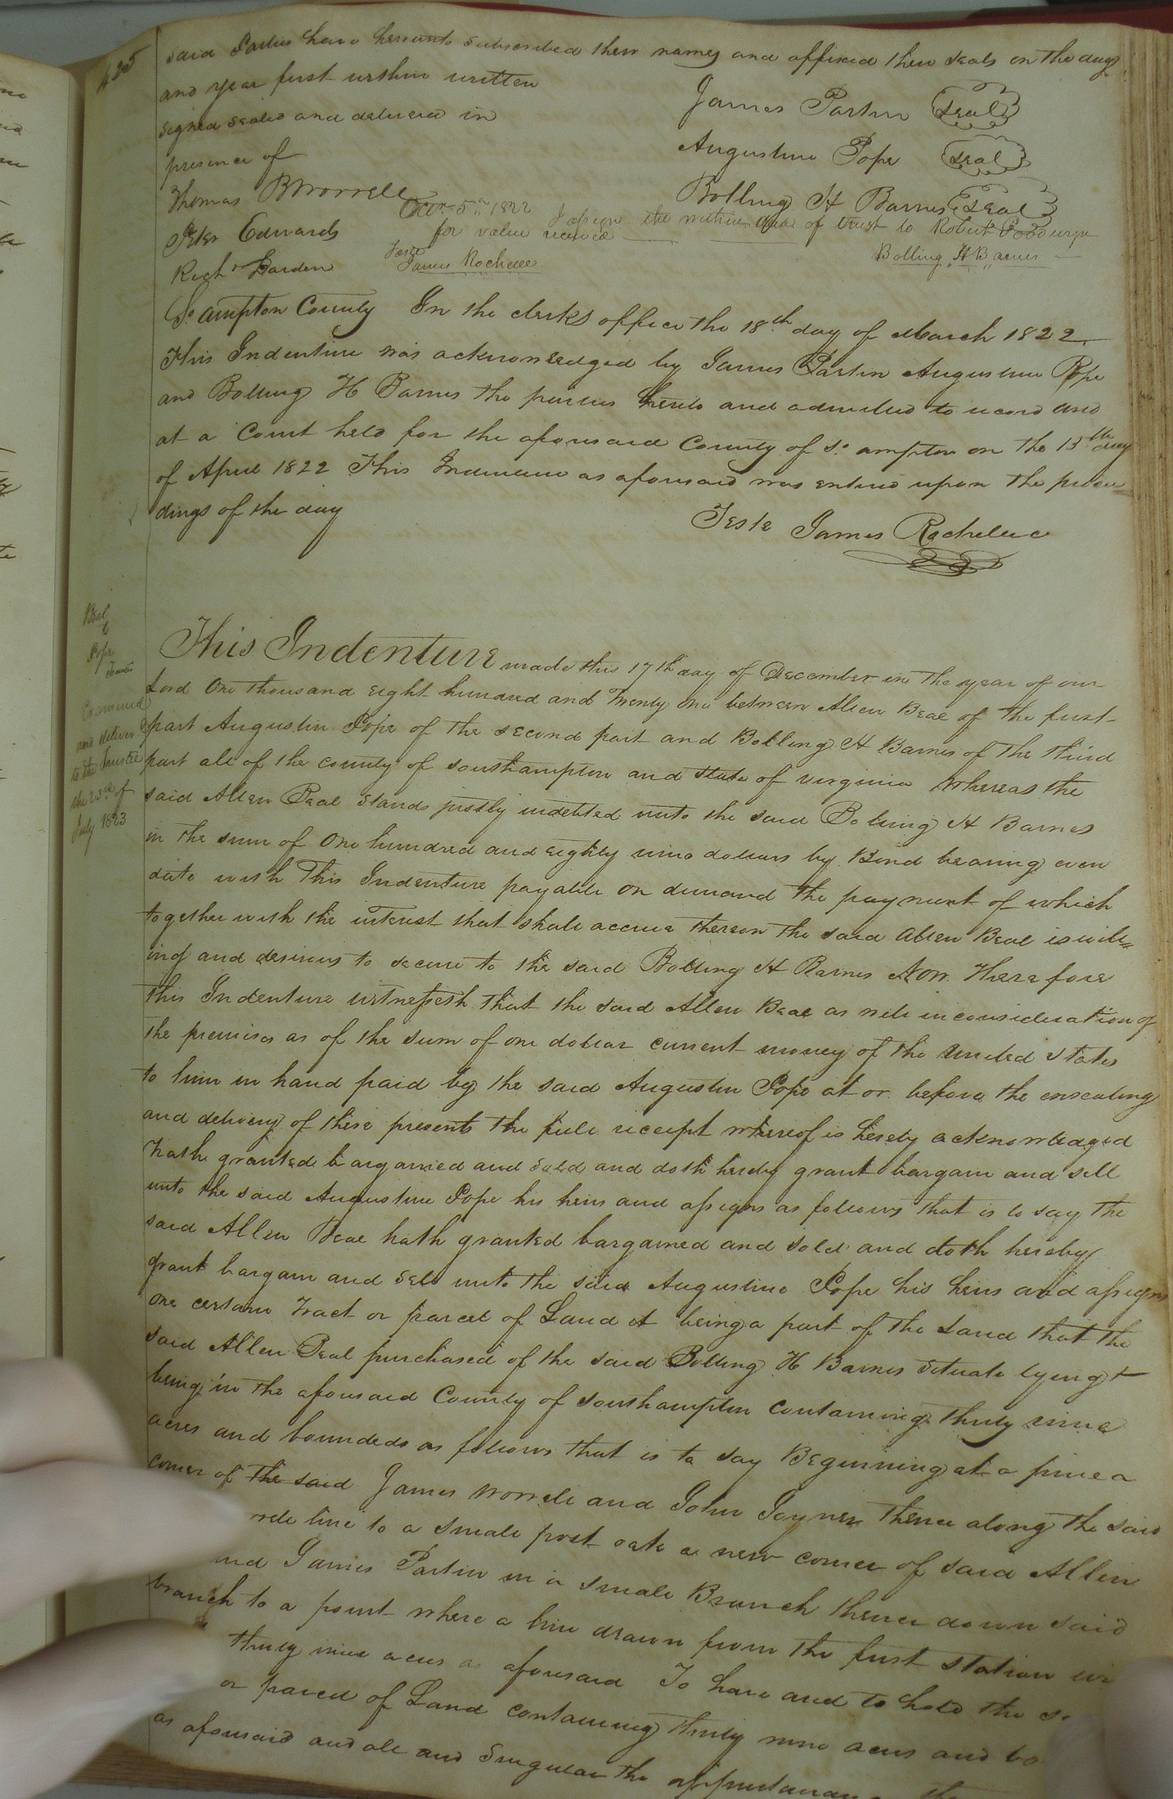 425
said Parties have hereunto subscribed their names and affixed their seals on the day
and year first within written
signed sealed and delivered in
presence of
James Partin Seal
Augustine Pope Seal
Bolling H Barnes Seal
Thomas B Worrell
Peter Edwards
Richd Darden
1822 I assign the within deed of trust to Robert
for value received
Bolling H Barnes
Teste
James Rochelle
So ampton County In the clerks office the 18th day of March 1822
This Indenture was acknowledged by James Partin Augustine Pope
and Bolling H Barnes the parties hereto and admitted to record and
at a Court held for the aforesaid County of So ampton on the 15th day
of April 1822 This Indenture as aforesaid was entered upon the procee
dings of the day
Teste James Rochelle
Beal
Pope
Trustee
Examined
and deliver
to the trustee
the 23rd of
July 1823
This Indenture made this 17th day of December in the year of our
Lord One thousand eight hundred and twenty one between Allen Beal of the first
part Augustin Pope of the second part and Bolling H Barnes of the third
part all of the county of Southampton and state of Virginia Whereas the
said Allen Beal stands justly indebted unto the said Bolling H Barnes
in the sum of One hundred and eighty nine dollars by Bond bearing even
date with This Indenture payable on demand the payment of which
together with the interest that shall accrue thereon the said Allen Beal is will=
ing and desirous to secure to the said Bolling H Barnes Now Therefore
this Indenture witnesseth that the said Allen Beal as well in consideration of
the premises as of the sum of one dollar current money of the United States
to him in hand paid by the said Augustin Pope at or before the ensealing
and delivery of these presents the full receipt whereof is hereby acknowledged
hath granted bargained and sold and doth hereby grant bargain and sell
unto the said Augustine Pope his heirs and assigns as follows that is to say the
said Allen Beal hath granted bargained and sold and doth hereby
grant bargain and sell unto the said Augustine Pope his heirs and assigns
one certain Tract or parcel of Land it being a part of the Land that the
said Allen Beal purchased of the said Bolling H Barnes situate lying &
being in the aforesaid County of Southampton containing thirty nine
acres and bounded as follows that is to say Beginning at a pine a
corner of the said James Worrell and John Joyner thence along the said
line to a small post oak a new corner of said Allen
and James Partin in a small Branch thence down said
branch to a point where a line drawn from the first station
thirty nine acres as aforesaid To have and to hold the
or parcel of Land containing thirty nine acres and
as aforesaid and all and Singular the